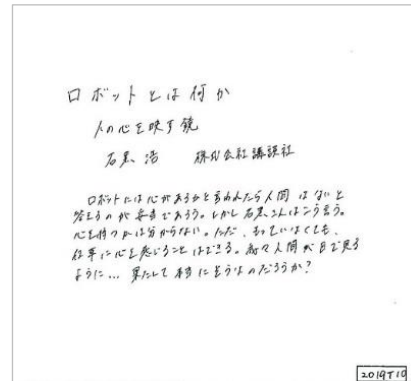 ロボットとは何か
人の心を映す鏡
石黒 浩 株式会社講談社
ロボットには心があるかと言われたら人間はないと
答えるのが妥当であろう。しかし石黒さんはこう言う。
心を持つかは分からない。ただ、もっていなくても、
仕草に心を感じることはできる。我々人間が目で見る
ように… 果たして本当にそうなのだろうか?
2019T10